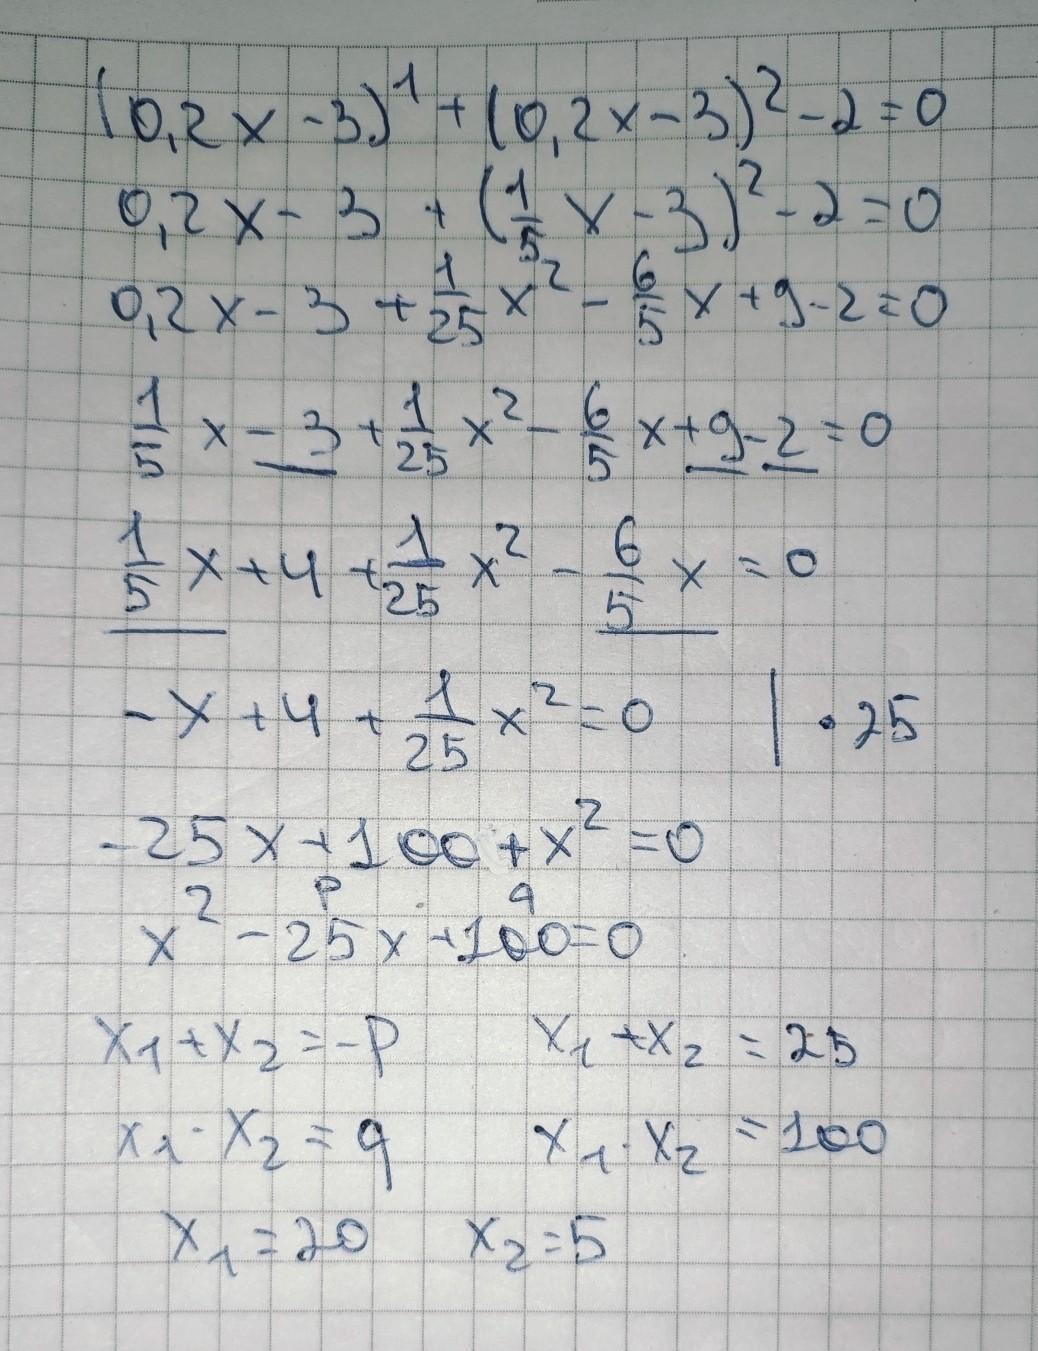 (0,2x-3)¹+(0,2x-3)²-2=0
0,2x-3+(1/5x-3)²-2=0
0,2x-3+1/25x²-6/5x+9-2=0
1/5x-3+1/25x²-6/5x+9-2=0
1/5x+4+1/25x²-6/5x=0
-x+4+1/25x²=0 | •25
-25x+100+x²=0
p q
x²-25x+100=0
x₁+x₂=-p x₁+x₂=25
x₁·x₂=q x₁·x₂=100
x₁=20 x₂=5